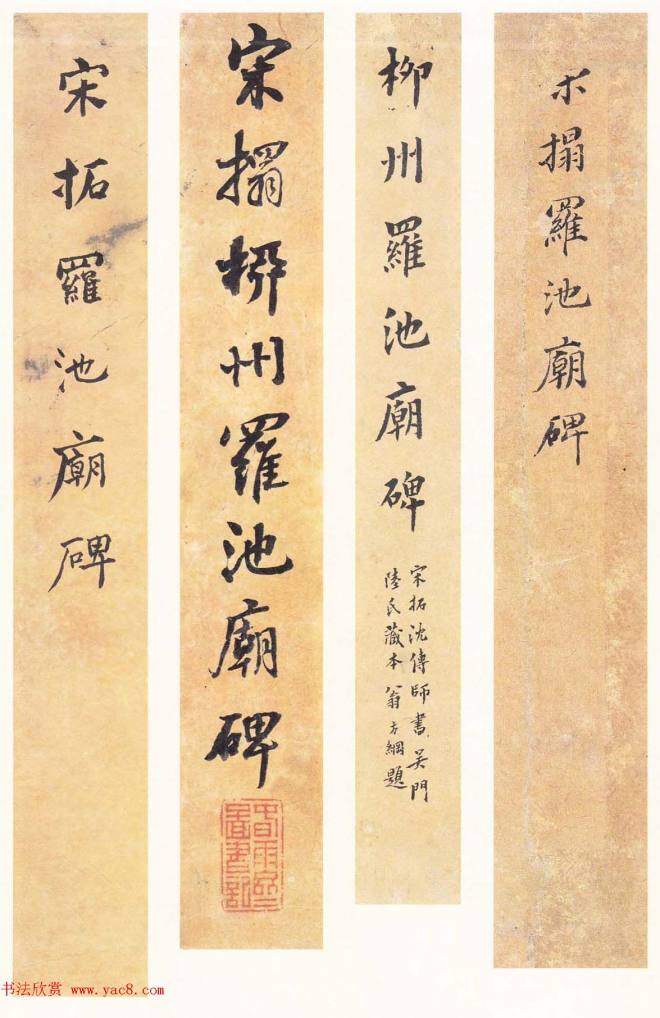 搨羅池廟碑
柳州羅池廟碑
宋拓沈傳師書吳門
陸氏藏本翁方綱題
宋搨柳州羅池廟碑
宋拓羅池廟碑
书法欣赏 www.yac8.com